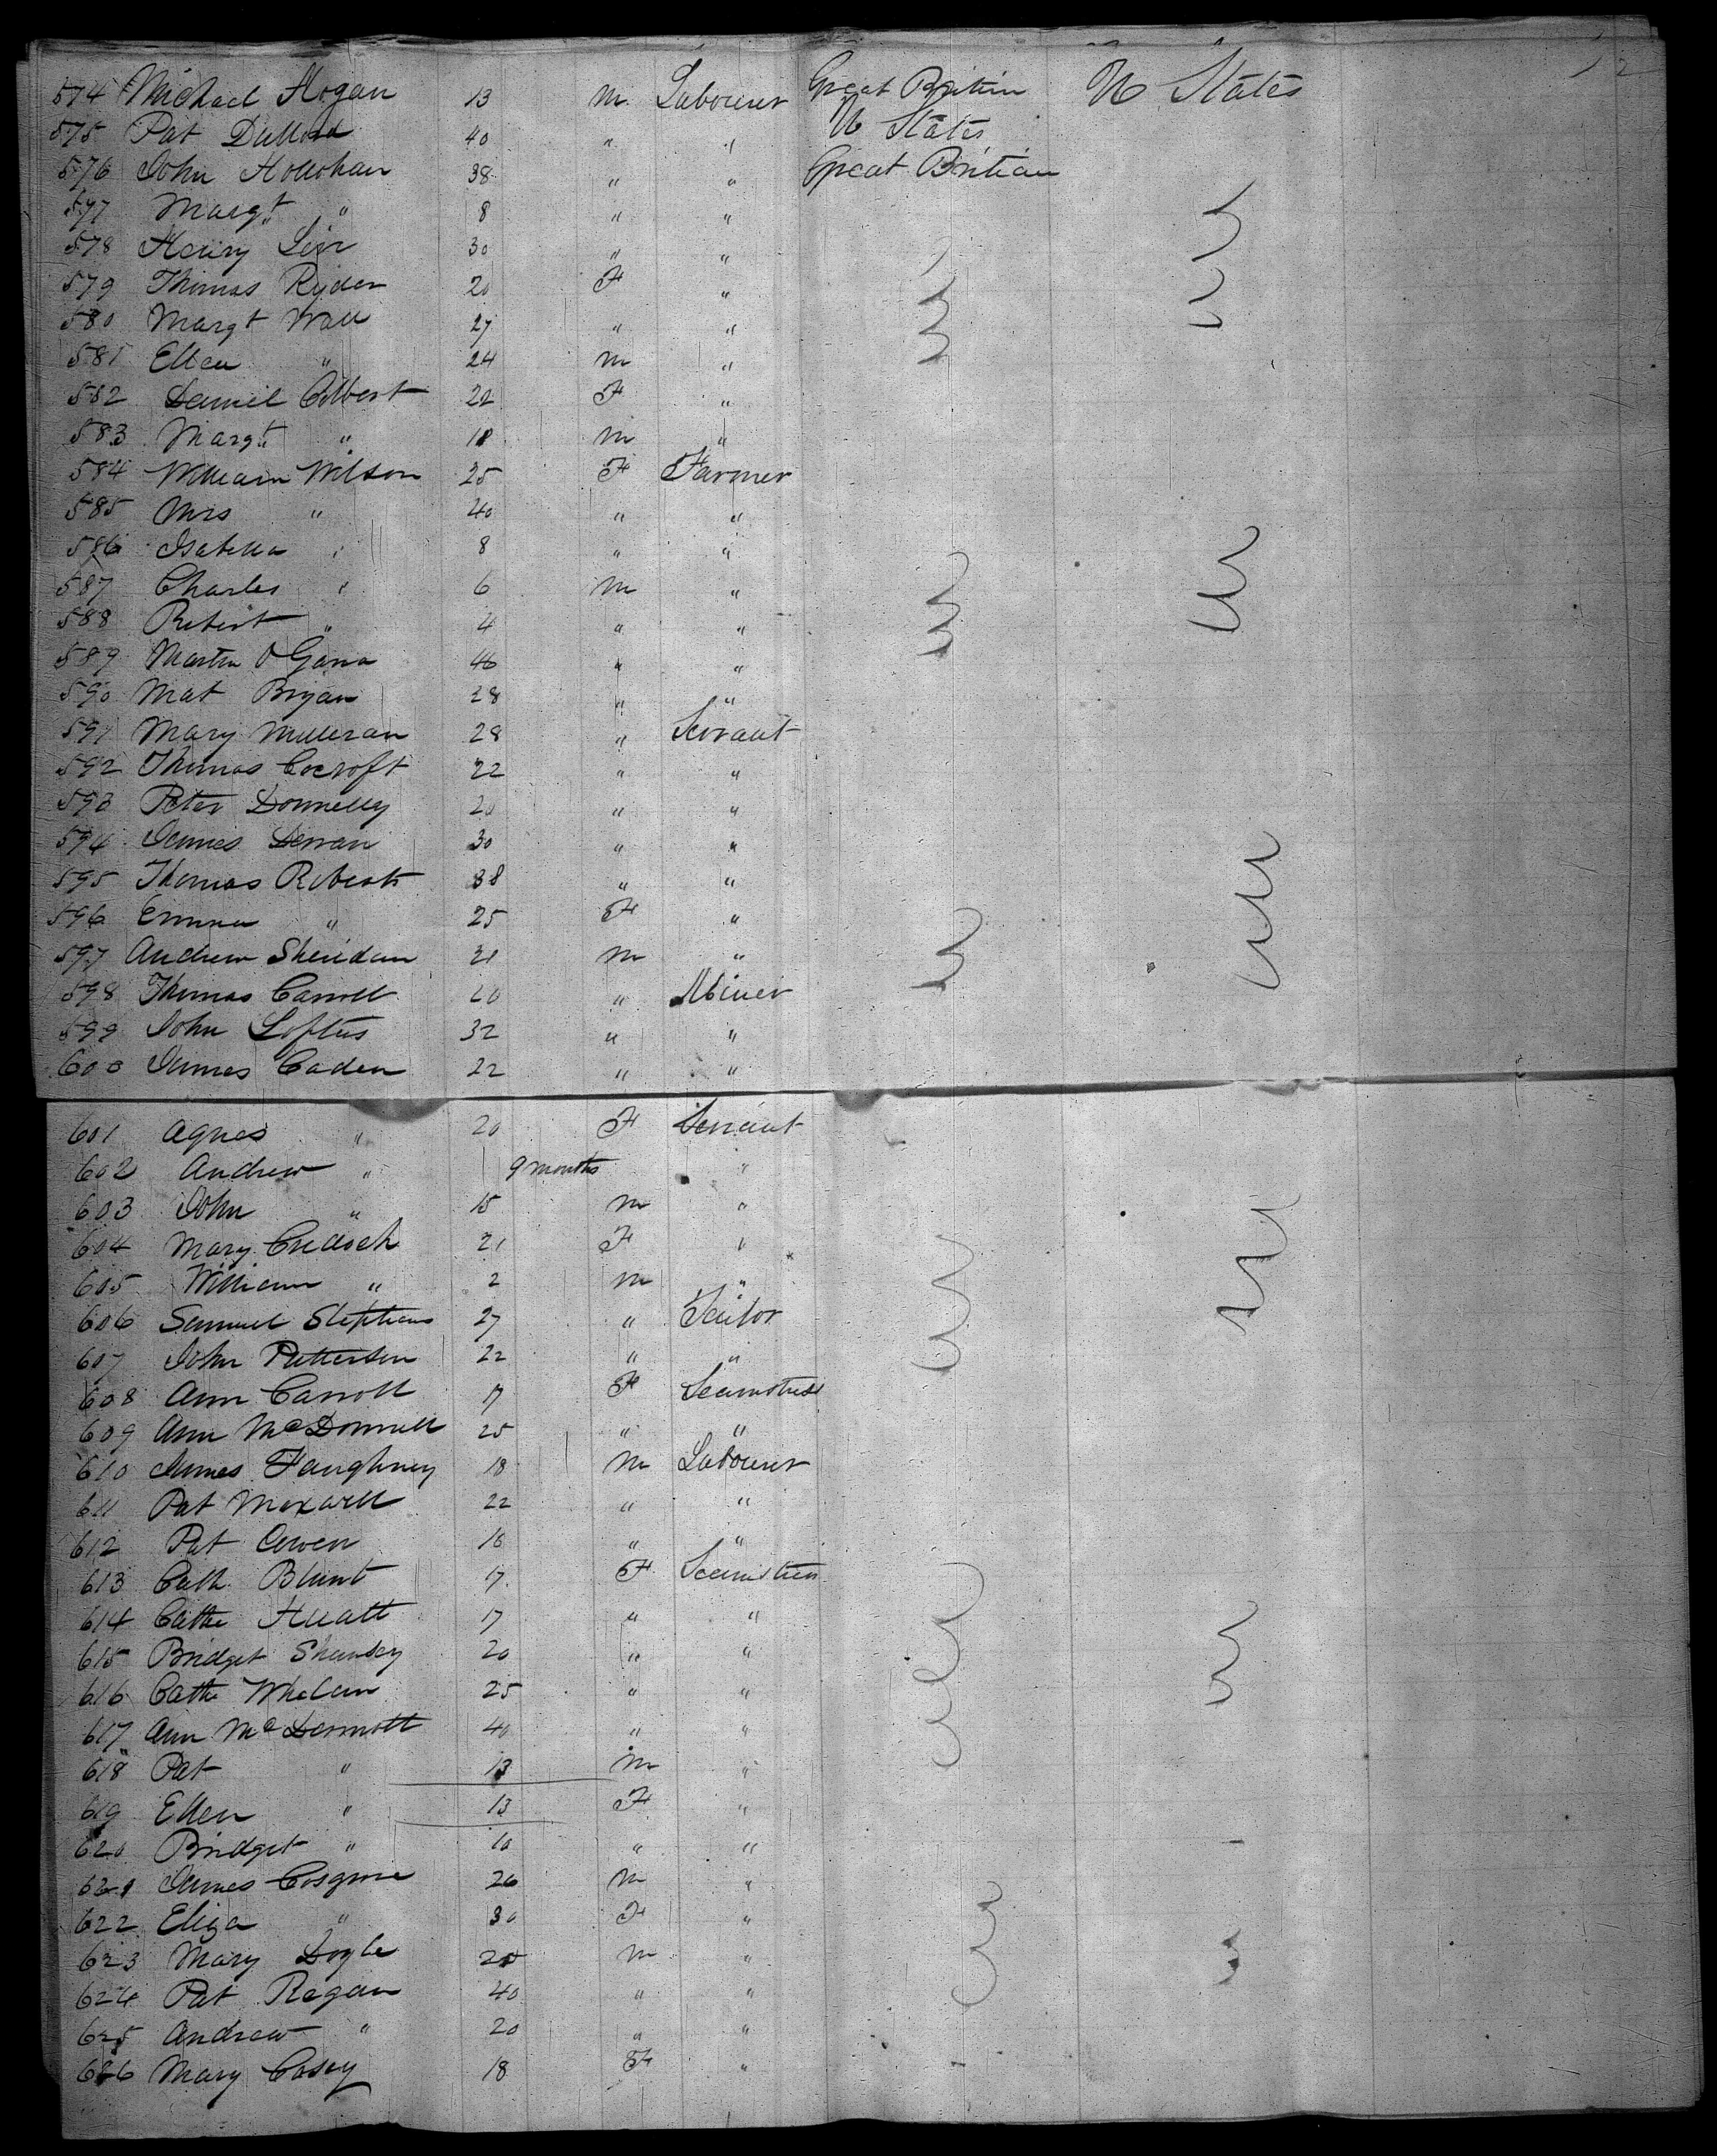 574 Michael Hogan 13 m Labourer Great Britain U States
575 Pat 40 " " U States
576 John Hollohan 38 " " Great Britian
577 Margt " 8 " "
578 Henry 30 " "
579 Thomas Ryder 20 F "
580 Margt Wall 27 " "
581 Ellen " 24 m "
582 Daniel Colbert 22 F "
583 Margt " 18 m "
584 William Wilson 25 F Farmer
585 Mrs " 40 " "
586 Isabella " 8 " "
587 Charles " 6 m "
588 Robert " 4 " "
589 Martin O Gara 46 " "
590 Mat Bryan 28 " "
591 Mary Mulleran 28 " Servant
592 Thomas Cocroft 22 " "
593 Peter Donnelly 20 " "
594 James 30 " "
595 Thomas Roberts 38 " "
596 Emma " 25 F "
597 Andrew Sheridan 21 m "
598 Thomas Carroll 20 " Miner
599 John Loftus 32 " "
600 James Caden 22 " "
601 Agnes " 20 F Servant
602 Andrew " 9 months "
603 John " 15 m "
604 Mary 21 F "
605 William " 2 m "
606 Samuel Stephens 27 " Tailor
607 John Patterson 22 " "
608 Ann Carroll 17 F Seamstress
609 Ann McDonnell 25 " "
610 James Faughney 18 m Labourer
611 Pat Maxwell 22 " "
612 Pat Owen 18 " "
613 Cath Blunt 17 F Seamstress
614 Cathe 17 " "
615 Bridget 20 " "
616 Cathe Whelan 25 " "
617 Ann McDermott 40 " "
618 Pat " 13 m "
619 Ellen " 13 F "
620 Bridget " 10 " "
621 James Cosgrove 26 m "
622 Eliza " 30 F "
623 Mary Doyle 20 m "
624 Pat Regan 40 " "
625 Andrew " 20 " "
626 Mary Casey 18 F "